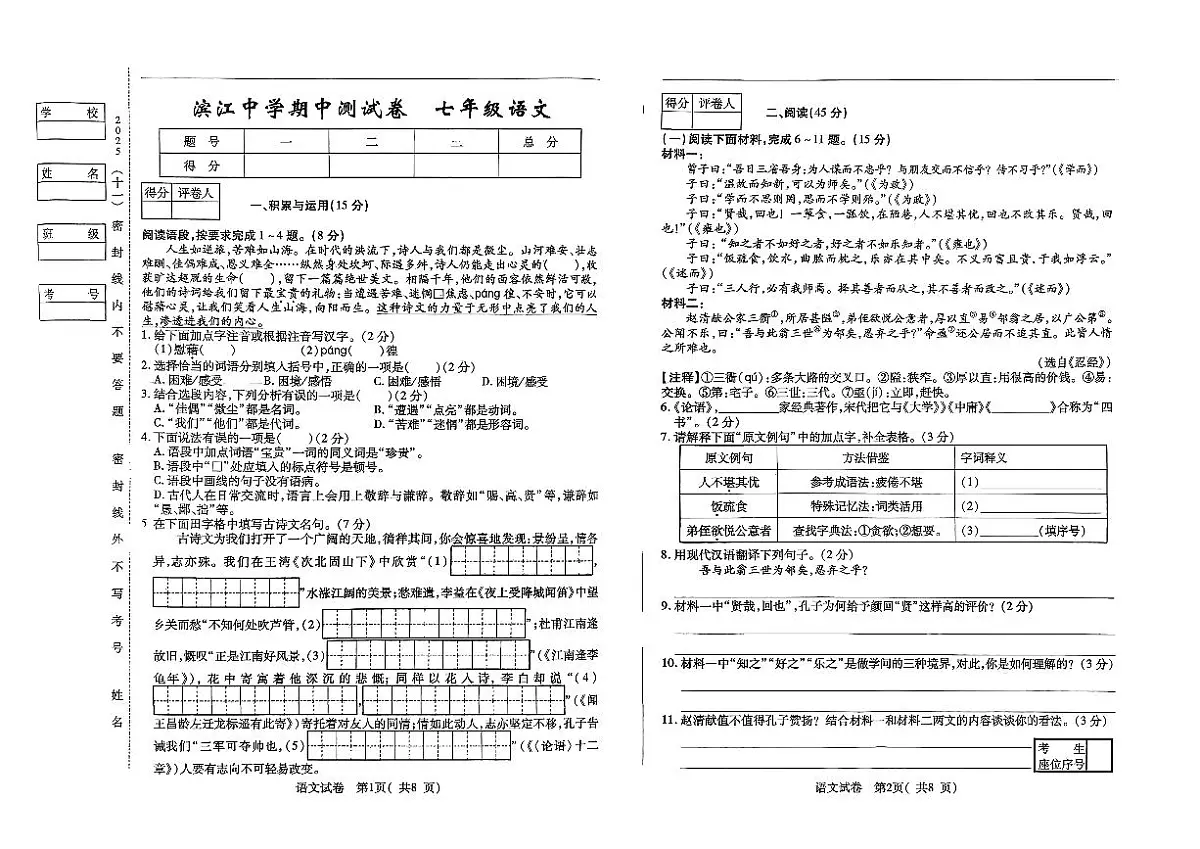 学 校
姓 名
班 级
考 号
2025(十一)密封线内不要答题
密封线外不写考号
姓名
滨江中学期中测试卷 七年级语文
题 号 一 二 三 总 分
得 分
得分 评卷人
一、积累与运用(15分)
阅读语段,按要求完成1~4题。(8分)
人生如逆旅,苦难如山海。在时代的洪流下,诗人与我们都是微尘。山河难安、壮志
难酬、佳偶难成、恩义难全……纵然身处坎坷、际遇多舛,诗人仍能走出心灵的( ),收
获旷达超脱的生命( ),留下一篇篇绝世美文。相隔千年,他们的面容依然鲜活可数,
他们的诗词给我们留下最宝贵的礼物:当遭遇苦难、迷惘□焦虑、páng徨、不安时,它可以
慰藉心灵,让我们笑看人生山海,向阳而生。这种诗文的力量于无形中点亮了我们的人
生,渗透进我们的内心。
1. 给下面加点字注音或根据注音写汉字。(2分)
(1)慰藉( ) (2)páng( )徨
2. 选择恰当的词语分别填入括号中,正确的一项是( )(2分)
A. 困难/感受 B. 困境/感悟 C. 困难/感悟 D. 困境/感受
3. 结合选段内容,下列分析有误的一项是( )(2分)
A. “佳偶”“微尘”都是名词。 B. “遭遇”“点亮”都是动词。
C. “我们”“他们”都是代词。 D. “苦难”“迷惘”都是形容词。
4. 下面说法有误的一项是( )(2分)
A. 语段中加点词语“宝贵”一词的同义词是“珍贵”。
B. 语段中“□”处应填入的标点符号是顿号。
C. 语段中画线的句子没有语病。
D. 古代人在日常交流时,语言上会用上敬辞与谦辞。敬辞如“赐、高、贤”等,谦辞如
“愚、鄙、拙”等。
5 在下面田字格中填写古诗文名句。(7分)
古诗文为我们打开了一个广阔的天地,徜徉其间,你会惊喜地发现:景纷呈,情各
异,志亦殊。我们在王湾《次北固山下》中欣赏“(1) ,
”水涨江阔的美景;愁难遣,李益在《夜上受降城闻笛》中望
乡关而愁“不知何处吹芦管,(2) ”;杜甫江南逢
故旧,慨叹“正是江南好风景,(3) ”(《江南逢李
龟年》),花中寄寓着他深沉的悲慨;同样以花入诗,李白却说“(4)
, ”(《闻
王昌龄左迁龙标遥有此寄》)寄托着对友人的同情;情如此动人,志亦坚定不移,孔子告
诫我们“三军可夺帅也,(5) ”(《〈论语〉十二
章》)人要有志向不可轻易改变。
语文试卷 第1页( 共8 页)
得分 评卷人
二、阅读(45分)
(一)阅读下面材料,完成6~11题。(15分)
材料一:
曾子曰:“吾日三省吾身:为人谋而不忠乎?与朋友交而不信乎?传不习乎?”(《学而》)
子曰:“温故而知新,可以为师矣。”(《为政》)
子曰:“学而不思则罔,思而不学则殆。”(《为政》)
子曰:“贤哉,回也!一箪食,一瓢饮,在陋巷,人不堪其忧,回也不改其乐。贤哉,回
也!”(《雍也》)
子曰:“知之者不如好之者,好之者不如乐知者。”(《雍也》)
子曰:“饭疏食,饮水,曲肱而枕之,乐亦在其中矣。不义而富且贵,于我如浮云。”
(《述而》)
子曰:“三人行,必有我师焉。择其善者而从之,其不善者而改之。”(《述而》)
材料二:
赵清献公家三衢①,所居甚隘②,弟侄欲悦公意者,厚以直③易④邻翁之居,以广公第⑤。
公闻不乐,曰:“吾与此翁三世⑥为邻矣,忍弃之乎?”命亟⑦还公居而不追其直。此皆人情
之所难也。
(选自《忍经》)
[注释]①三衢(qú):多条大路的交叉口。②隘:狭窄。③厚以直:用很高的价钱。④易:
交换。⑤第:宅子。⑥三世:三代。⑦亟(jí):立即,赶快。
6.《论语》, 家经典著作,宋代把它与《大学》《中庸》《 》合称为“四
书”。(2分)
7. 请解释下面“原文例句”中的加点字,补全表格。(3分)
原文例句 方法借鉴 字词释义
人不堪其忧 参考成语法:疲倦不堪 (1)
饭疏食 特殊记忆法:词类活用 (2)
弟侄欲悦公意者 查找字典法:①贪欲;②想要。 (3) (填序号)
8. 用现代汉语翻译下列句子。(2分)
吾与此翁三世为邻矣,忍弃之乎?
9. 材料一中“贤哉,回也”,孔子为何给予颜回“贤”这样高的评价?(2分)
10. 材料一中“知之”“好之”“乐之”是做学问的三种境界,对此,你是如何理解的?(3分)
11. 赵清献值不值得孔子赞扬?结合材料一和材料二两文的内容谈谈你的看法。(3分)
考 生
座位序号
语文试卷 第2页( 共8 页)